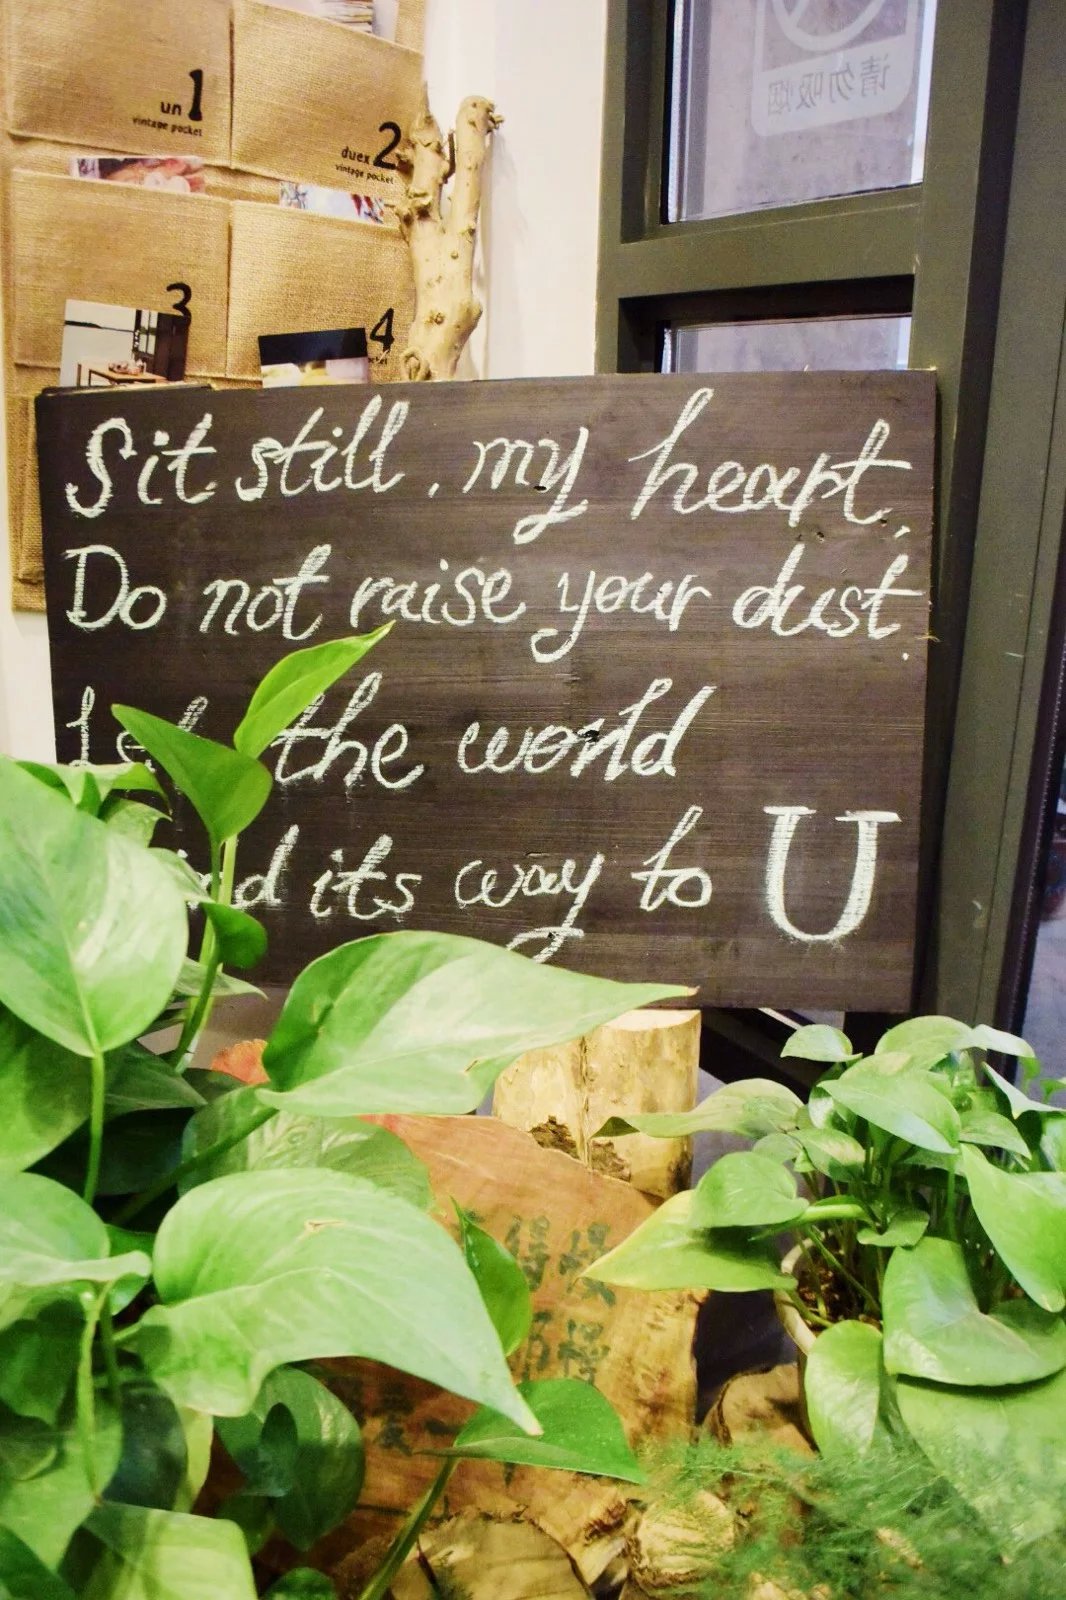 un 1
vintage pocket
duex 2
vintage pocket
3
4
请勿吸烟
Sit still, my heart,
Do not raise your dust.
Let the world
its way to U